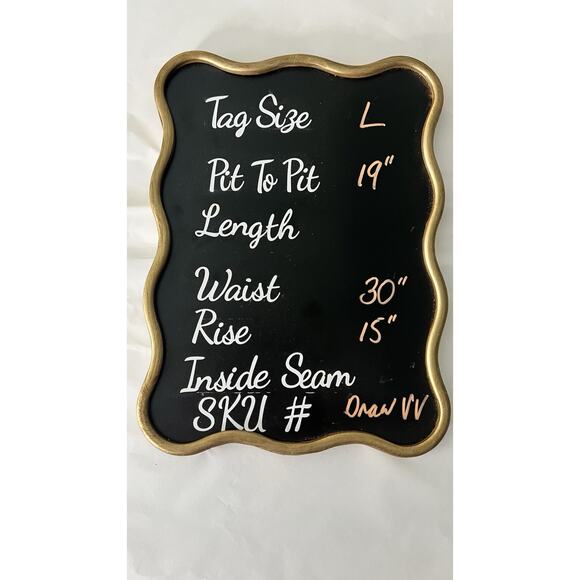 Tag Size L
Pit To Pit 19"
Length
Waist 30"
Rise 15"
Inside Seam
SKU # Draw VV